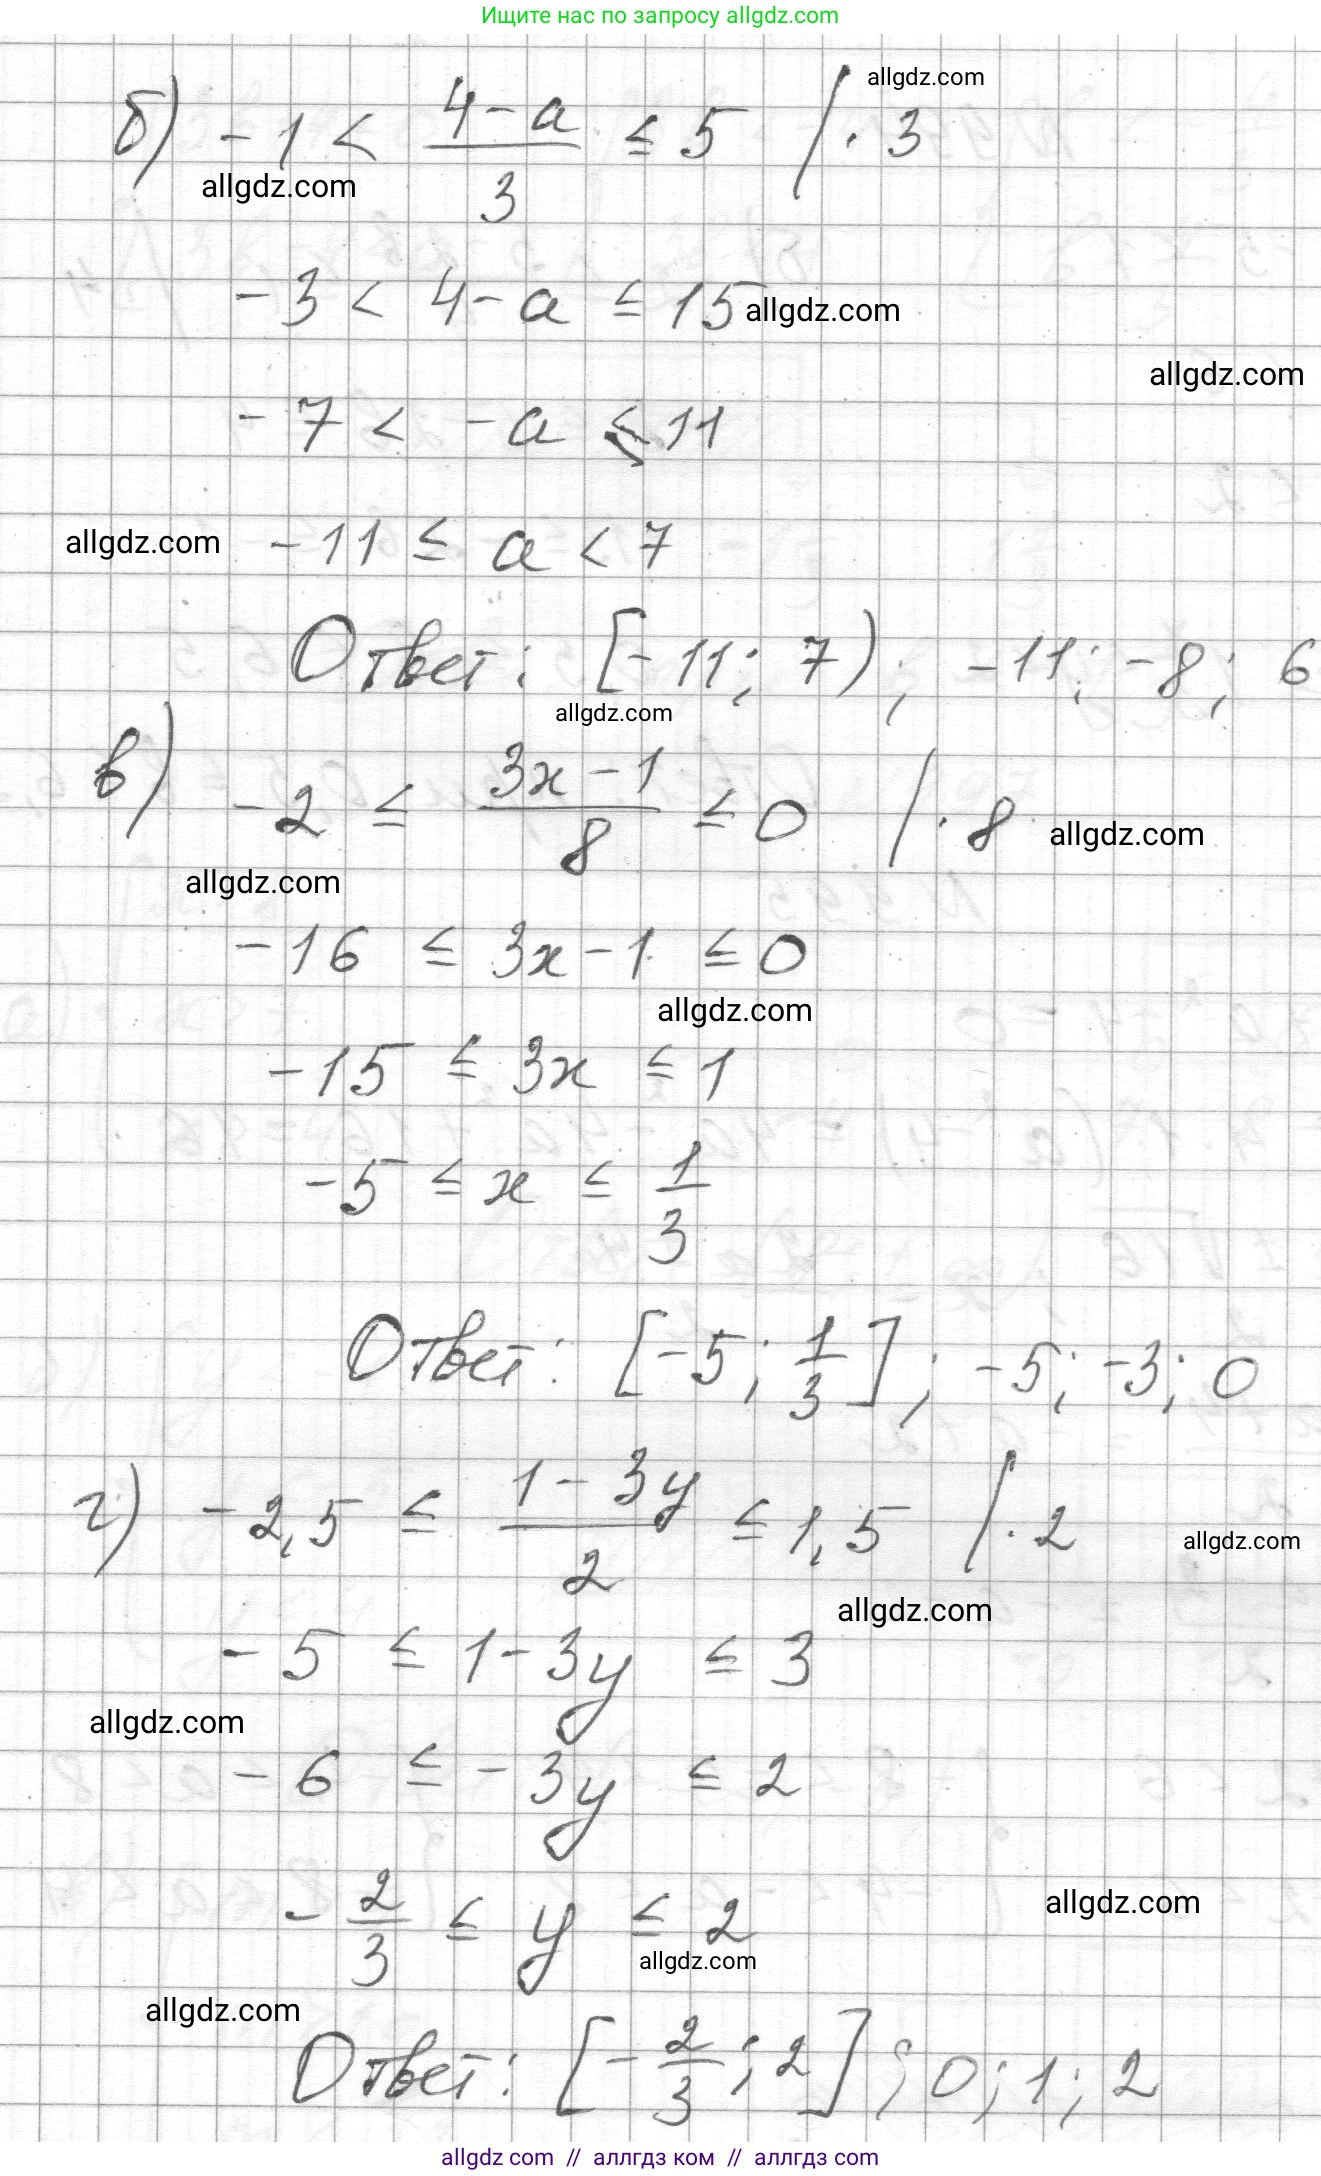 Ищите нас по запросу allgdz.com
allgdz.com
б) -1 < (4-a)/3 ≤ 5 /·3
allgdz.com
-3 < 4-a ≤ 15
allgdz.com
allgdz.com
-7 < -a ≤ 11
allgdz.com
-11 ≤ a < 7
Ответ: [-11; 7); -11; -8; 6
allgdz.com
в) -2 ≤ (3x-1)/8 ≤ 0 /·8
allgdz.com
allgdz.com
-16 ≤ 3x-1 ≤ 0
allgdz.com
-15 ≤ 3x ≤ 1
-5 ≤ x ≤ 1/3
Ответ: [-5; 1/3]; -5; -3; 0
г) -2,5 ≤ (1-3y)/2 ≤ 1,5 /·2
allgdz.com
allgdz.com
-5 ≤ 1-3y ≤ 3
allgdz.com
-6 ≤ -3y ≤ 2
-2/3 ≤ y ≤ 2
allgdz.com
allgdz.com
allgdz.com
Ответ: [-2/3; 2]; 0; 1; 2
allgdz.com // аллгдз ком // аллгдз.com